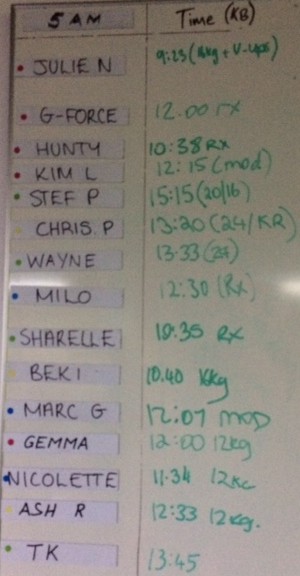 5 AM Time (KB)
JULIE N 9:23 (16kg + V-ups)
G-FORCE 12.00 rx
HUNTY 10:38 RX
KIM L 12:15 (mod)
STEF P 15:15 (20/16)
CHRIS.P 13:20 (24/KR)
WAYNE 13.33 (24)
MILO 12:30 (Rx)
SHARELLE 10:35 RX
BEKI 10.40 16kg
MARC G 12:07 MOD
GEMMA 12:00 12kg
NICOLETTE 11:34 12KG
ASH R 12:33 12kg.
TK 13:45